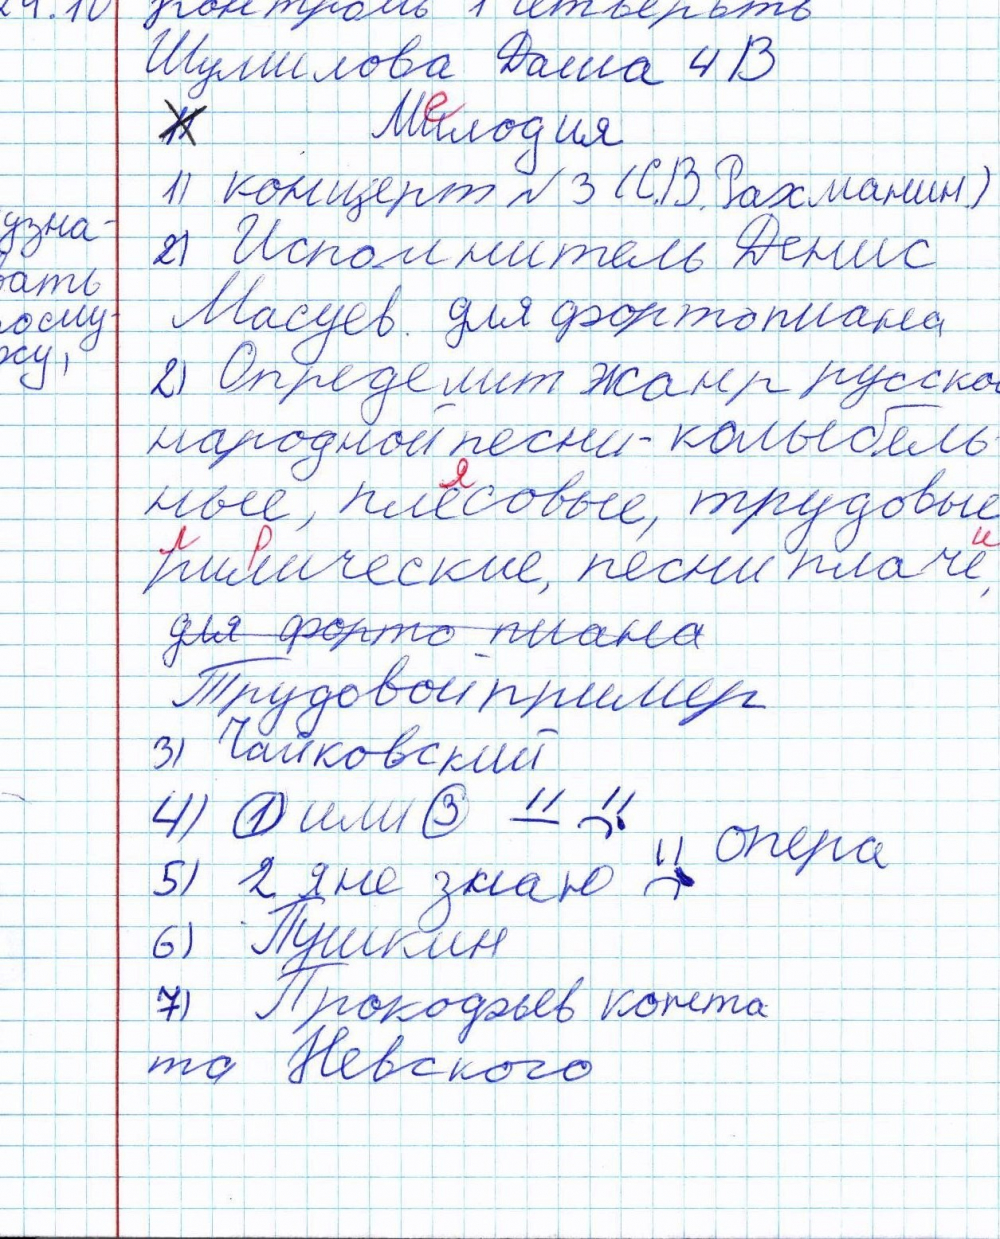 24.10 контроль 1 четверьть
Шумилова Даша 4В
Милодия
е
1) концерт №3 (С.В. Рахманин.)
2) Исполнитель Денис
Масуев. для фортопиана
2) Определит жанр русской
народной песни - колыбель-
я
ные, плесовые, трудовые
л р и
рилические, песни плаче,
для форто пиана
Трудовой пример
3) Чайковский
4) 1 или 3
5) 2 я не знаю опера
6) Пушкин
7) Прокофьев конта
та Невского
узна-
вать
ху,